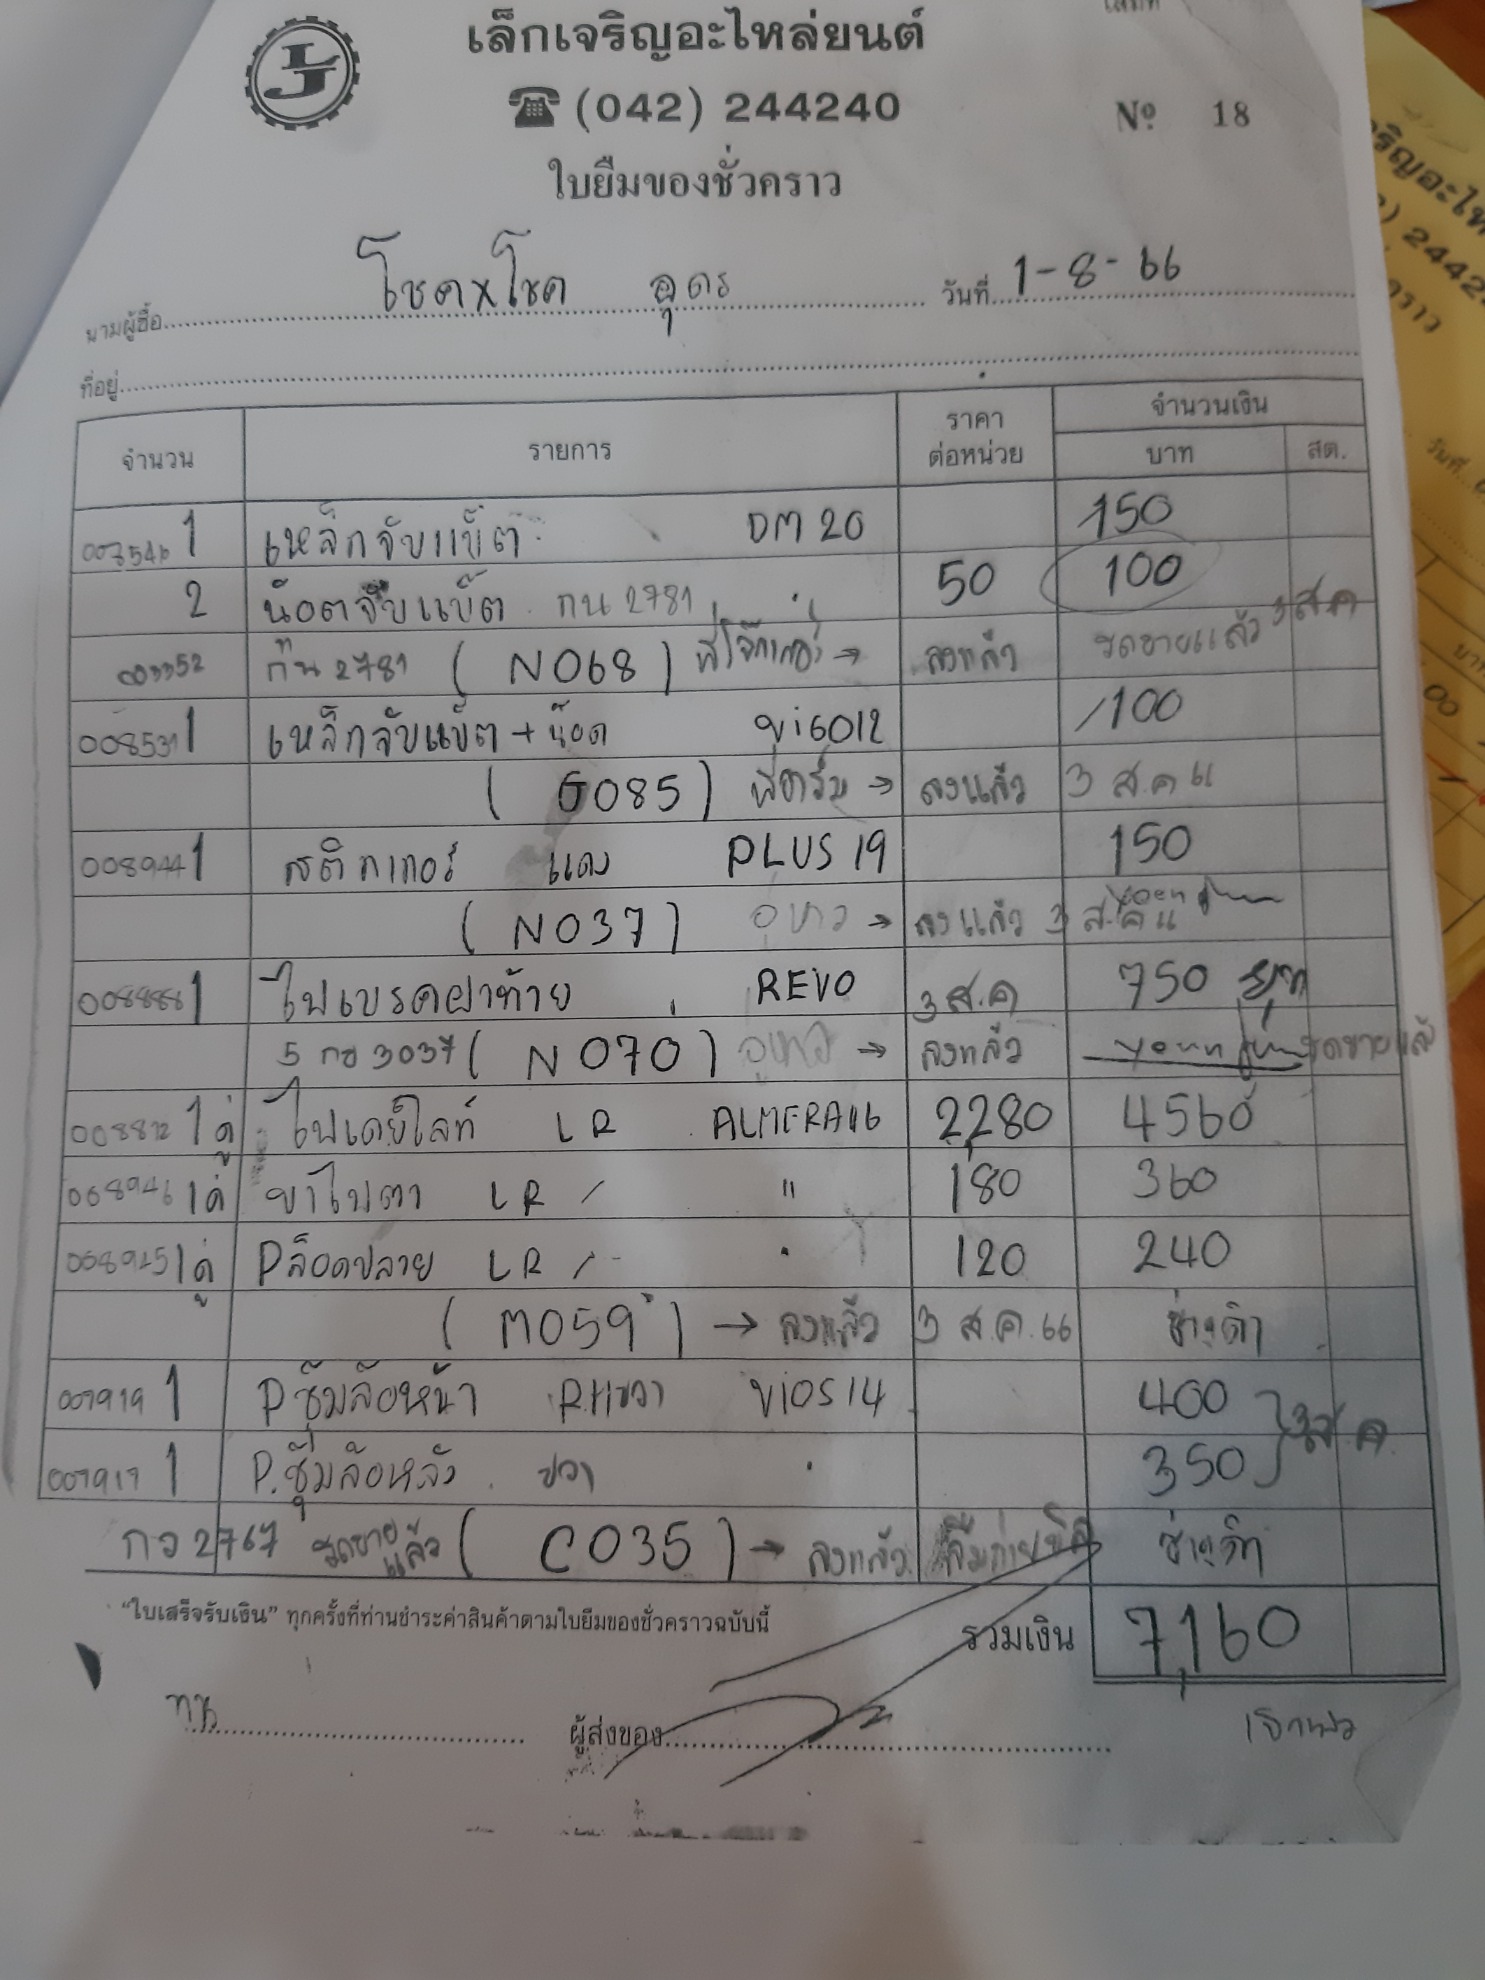 เล็กเจริญอะไหล่ยนต์
LJ
(042) 244240
Nº 18
ใบยืมของชั่วคราว
นามผู้ซื้อ โชคxโชค อุดร วันที่ 1-8-66
ที่อยู่
จำนวน รายการ ราคาต่อหน่วย จำนวนเงิน บาท สต.
1 เหล็กจับแบ็ต DM20 150
2 น๊อตจับแบ็ต กน 2781 50 100
003352 กน 2781 (N068) → ลงแล้ว รถขายแล้ว 3 ส.ค
008531 1 เหล็กจับแบ็ต + น๊อต vi6012 100
(G085) → ลงแล้ว 3 ส.ค 66
008944 1 สติกเกอร์ แดง PLUS 19 150
(N037) อู่ขาว → ลงแล้ว 3 ส.ค
008888 1 ไฟเบรคฝาท้าย REVO 3 ส.ค 750
5 กฮ 3037 (N070) อู่ขาว → ลงแล้ว รถขายแล้ว
008812 1 คู่ ไฟเดย์ไลท์ LR ALMERA 16 2,280 4560
008946 1 คู่ ขาไฟตา LR " 180 360
008945 1 คู่ Pล็อคปลาย LR " 120 240
(M059) → ลงแล้ว 3 ส.ค.66 ช่างดำ
007919 1 P.ซุ้มล้อหน้า RHขวา VIOS14 400
007917 1 P.ซุ้มล้อหลัง ขวา " 350 3 ส.ค.
กว 2767 รถขายแล้ว (C035) → ลงแล้ว ช่างดำ
"ใบเสร็จรับเงิน" ทุกครั้งที่ท่านชำระค่าสินค้าตามใบยืมของชั่วคราวฉบับนี้
รวมเงิน 7,160
ผู้ส่งของ